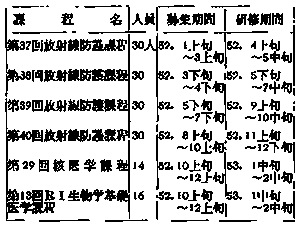 課 程 名 人員 募集期間 研修期間
第37回放射線防護課程 30人 52. 1上旬 52. 4上旬
～3上旬 ～5中旬
第38回放射線防護課程 30 52. 3下旬 52. 5下旬
～4下旬 ～7中旬
第39回放射線防護課程 30 52. 5下旬 52. 9上旬
～7下旬 ～10中旬
第40回放射線防護課程 30 52. 8上旬 52. 11上旬
～10上旬 ～12下旬
第29回核医学課程 14 52. 10上旬 53. 1中旬
～12上旬 ～2中旬
第13回RI生物学基礎 16 52. 10上旬 53. 1中旬
医学課程 ～12上旬 ～2中旬